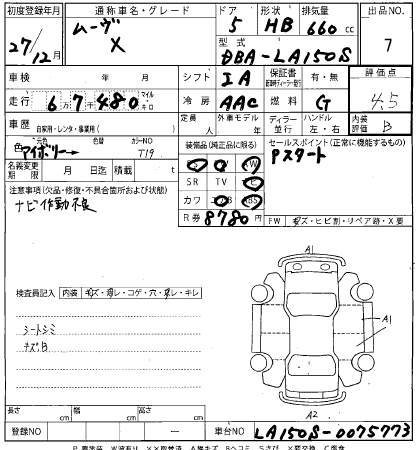 初度登録年月 通称車名・グレード ドア 形状 排気量 出品NO.
27/12月 ムーヴ X 5 HB 660cc 7
型式 DBA-LA150S
車検 年 月 シフト IA 保証書 有・無 評価点 4.5
走行 67480 マイル キロ 冷房 AAC 燃料 G 内装評価 B
車歴 自家用・レンタ・事業用( ) 定員 人 外車モデル 年 ディーラー 並行 ハンドル 左・右
色 元色 アイボリー 色替 カラーNO T19 装備品(純正品に限る) セールスポイント(正常に機能するもの)
PS PW AW Pスタート
名義変更期限 月 日迄 積載 t SR TV ナビ
注意事項(欠品・修復・不具合箇所および状態) カワ エアB ABS
ナビ作動不良 R券 8780円
FW キズ・ヒビ割・リペア跡・X要
A1
検査員記入 内装 キズ・汚レ・コゲ・穴・臭レ・キレ
シートシミ A1
キズB
長サ cm 幅 cm 高サ cm A2
登録NO 車台NO LA150S-0075773